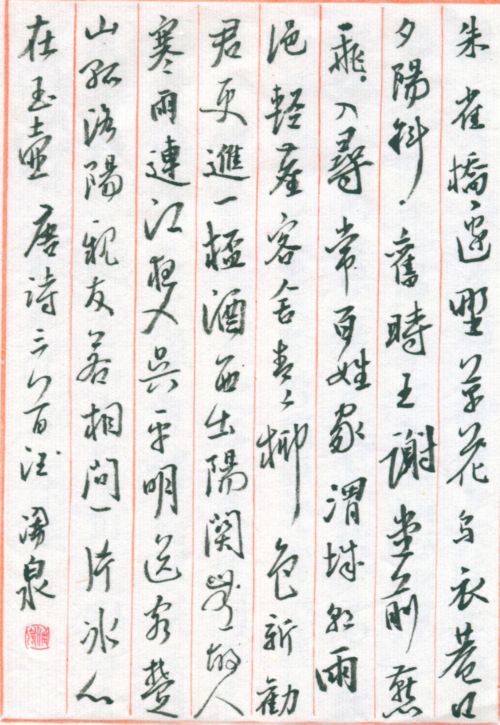 朱雀橋邊野草花烏衣巷口
夕陽斜舊時王謝堂前燕
飛入尋常百姓家渭城朝雨
浥輕塵客舍青々柳色新勸
君更進一桮酒西出陽關無故人
寒雨連江夜入吳平明送客楚
山孤洛陽親友若相問一片冰心
在玉壺 唐詩三 泉